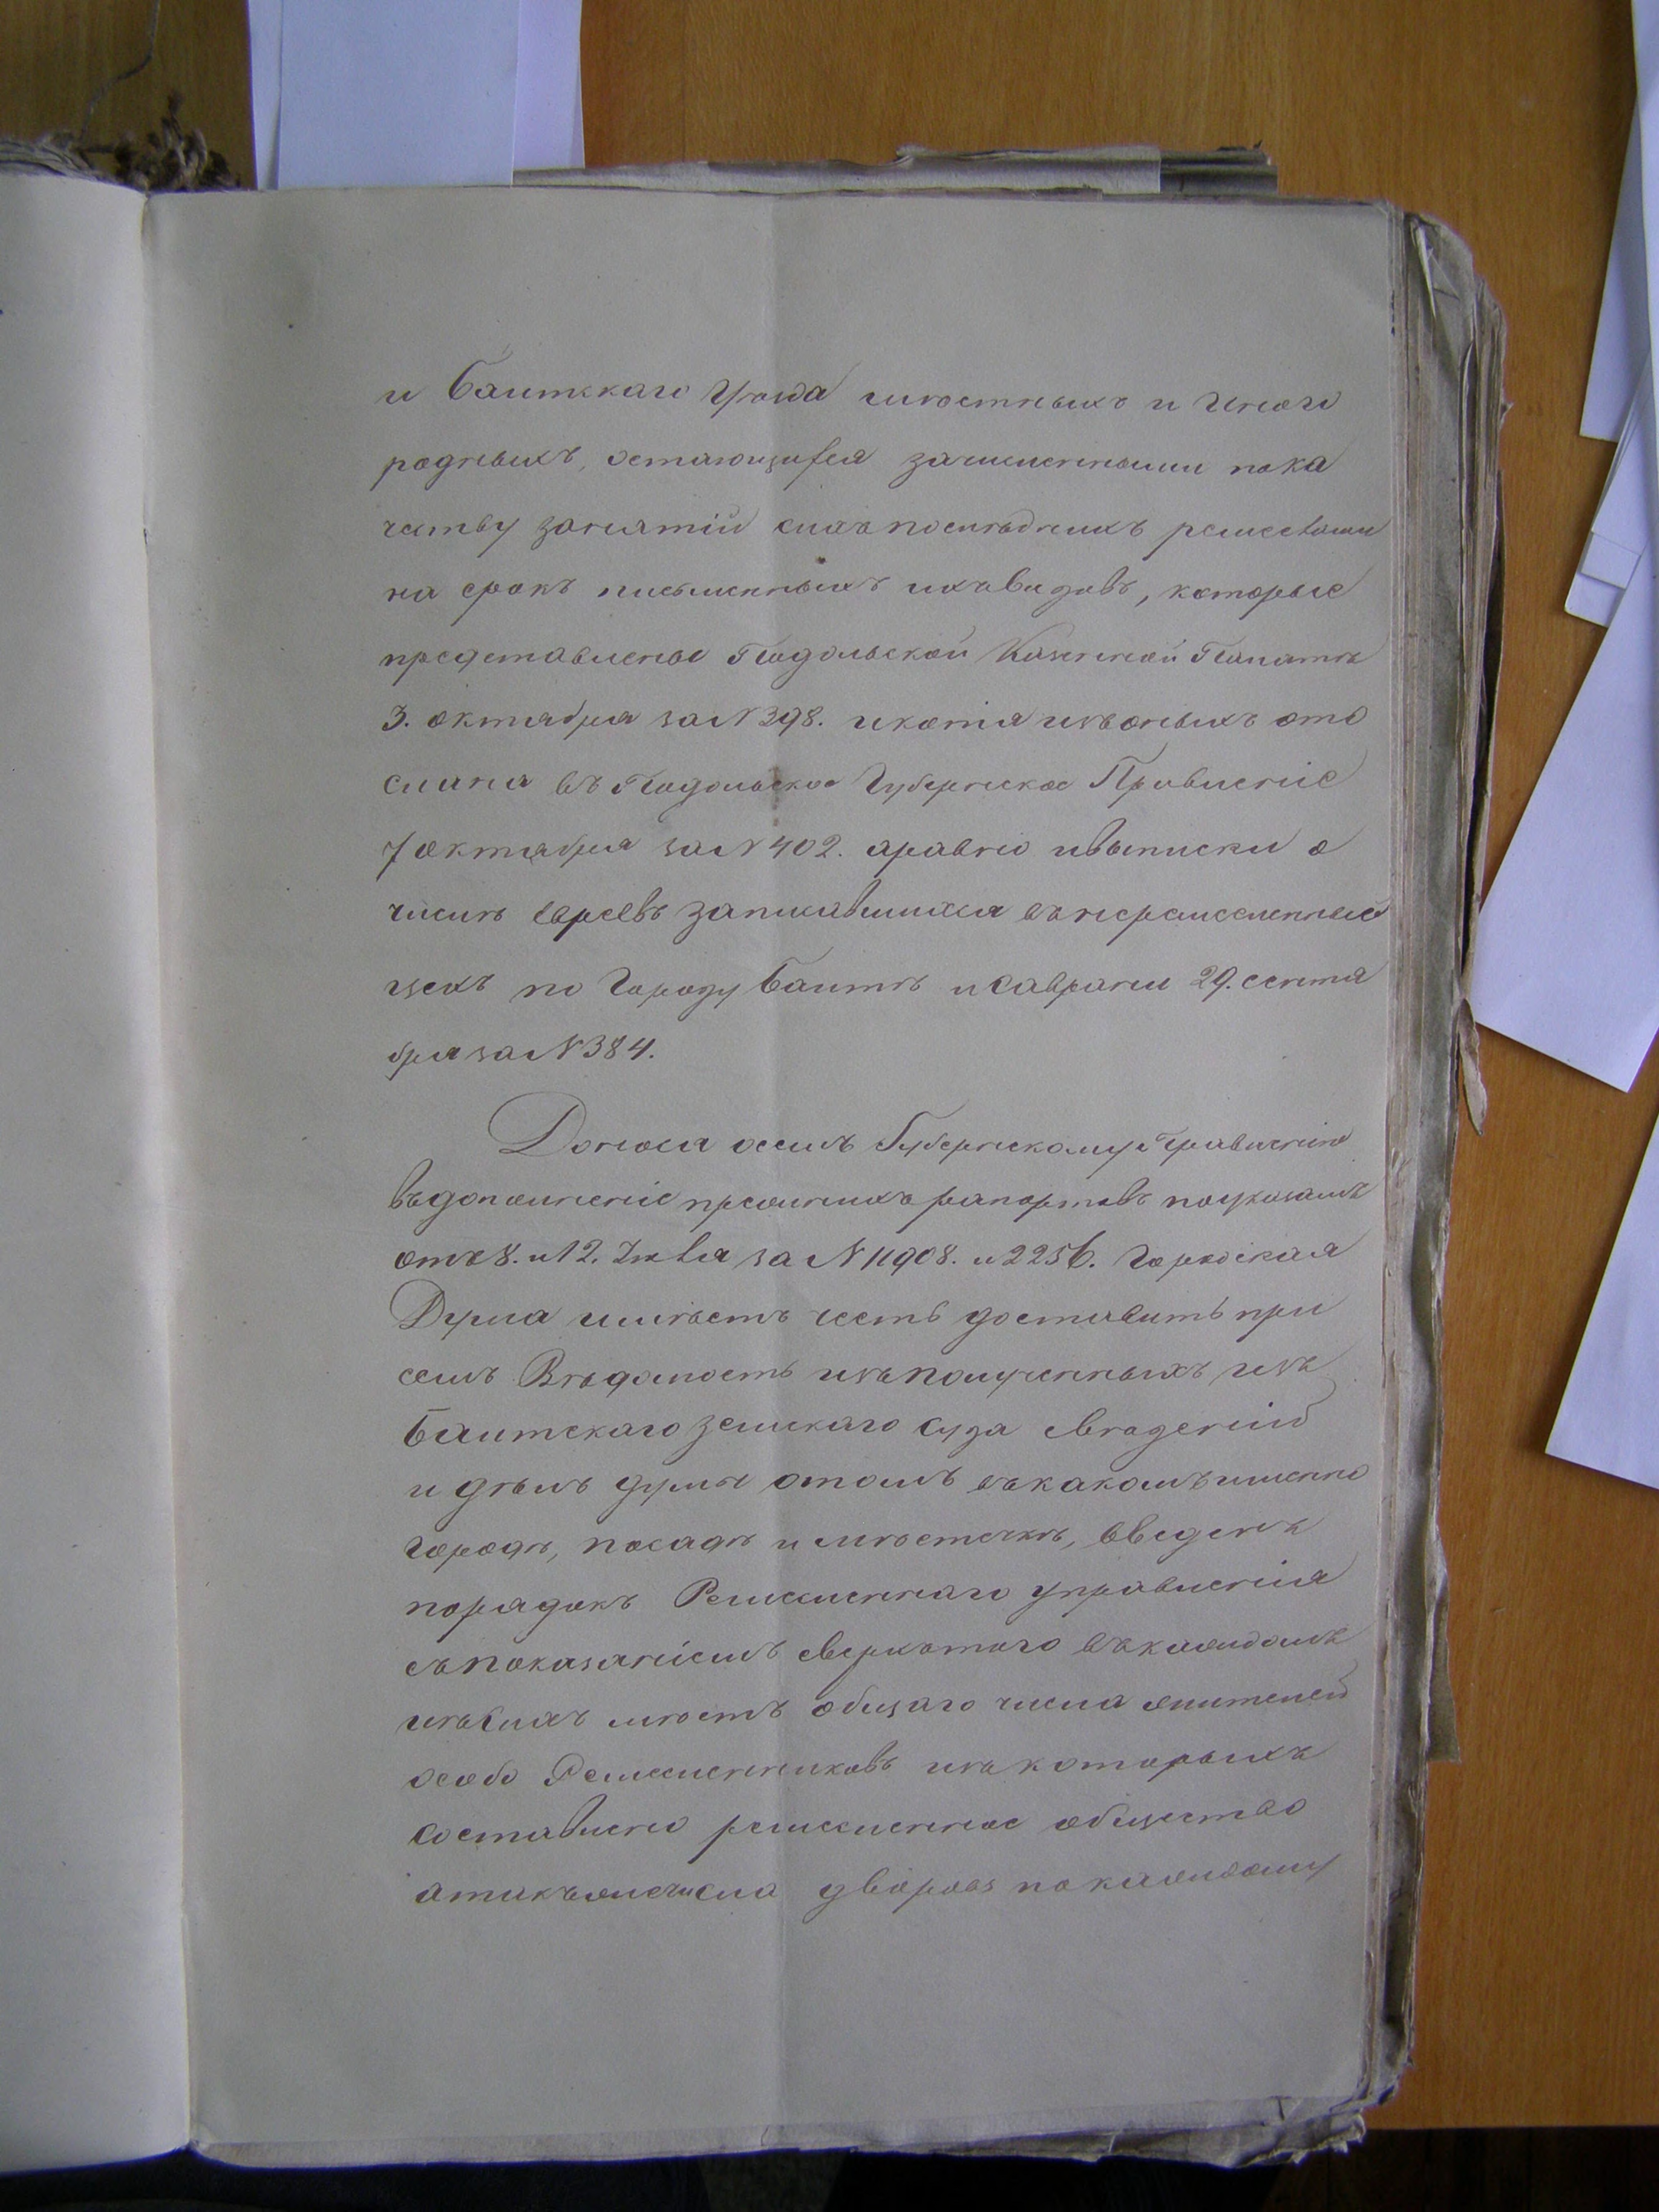 и Балтскаго уѣзда мѣстныхъ и иного
родныхъ, остающихся зачисленными по ка
честву занятій сихъ послѣднихъ ремеслами
на срокъ письменныхъ ихъ видовъ, которые
представлены Подольской Казенной Палатѣ
3. октября за N 398. и копія изъ оныхъ ото
слана въ Подольское Губернское Правленіе
7 октября за N 402. а равно и выписки о
числѣ евреевъ записавшихся въ неремесленный
цехъ по Городу Балтѣ и Саврани 29. сентя
бря за N 384.
Донося о семъ Губернскому Правленію
въ дополненіе прежнихъ рапортовъ по указамъ
отъ 8. и 12. Іюля за N 11908. и 2256. Городская
Дума имѣетъ честь доставить при
семъ Вѣдомость изъ полученныхъ изъ
Балтскаго земскаго суда свѣденій
и дѣлъ думы о томъ въ какомъ именно
городѣ, посадѣ и мѣстечкѣ, введенъ
порядокъ Ремесленнаго управленія
съ показаніемъ сверхъ того въ каждомъ
изъ сихъ мѣстъ общаго числа жителей
особо Ремесленниковъ изъ которыхъ
составлено ремесленное общество
а такъ же числа дворовъ по каждому